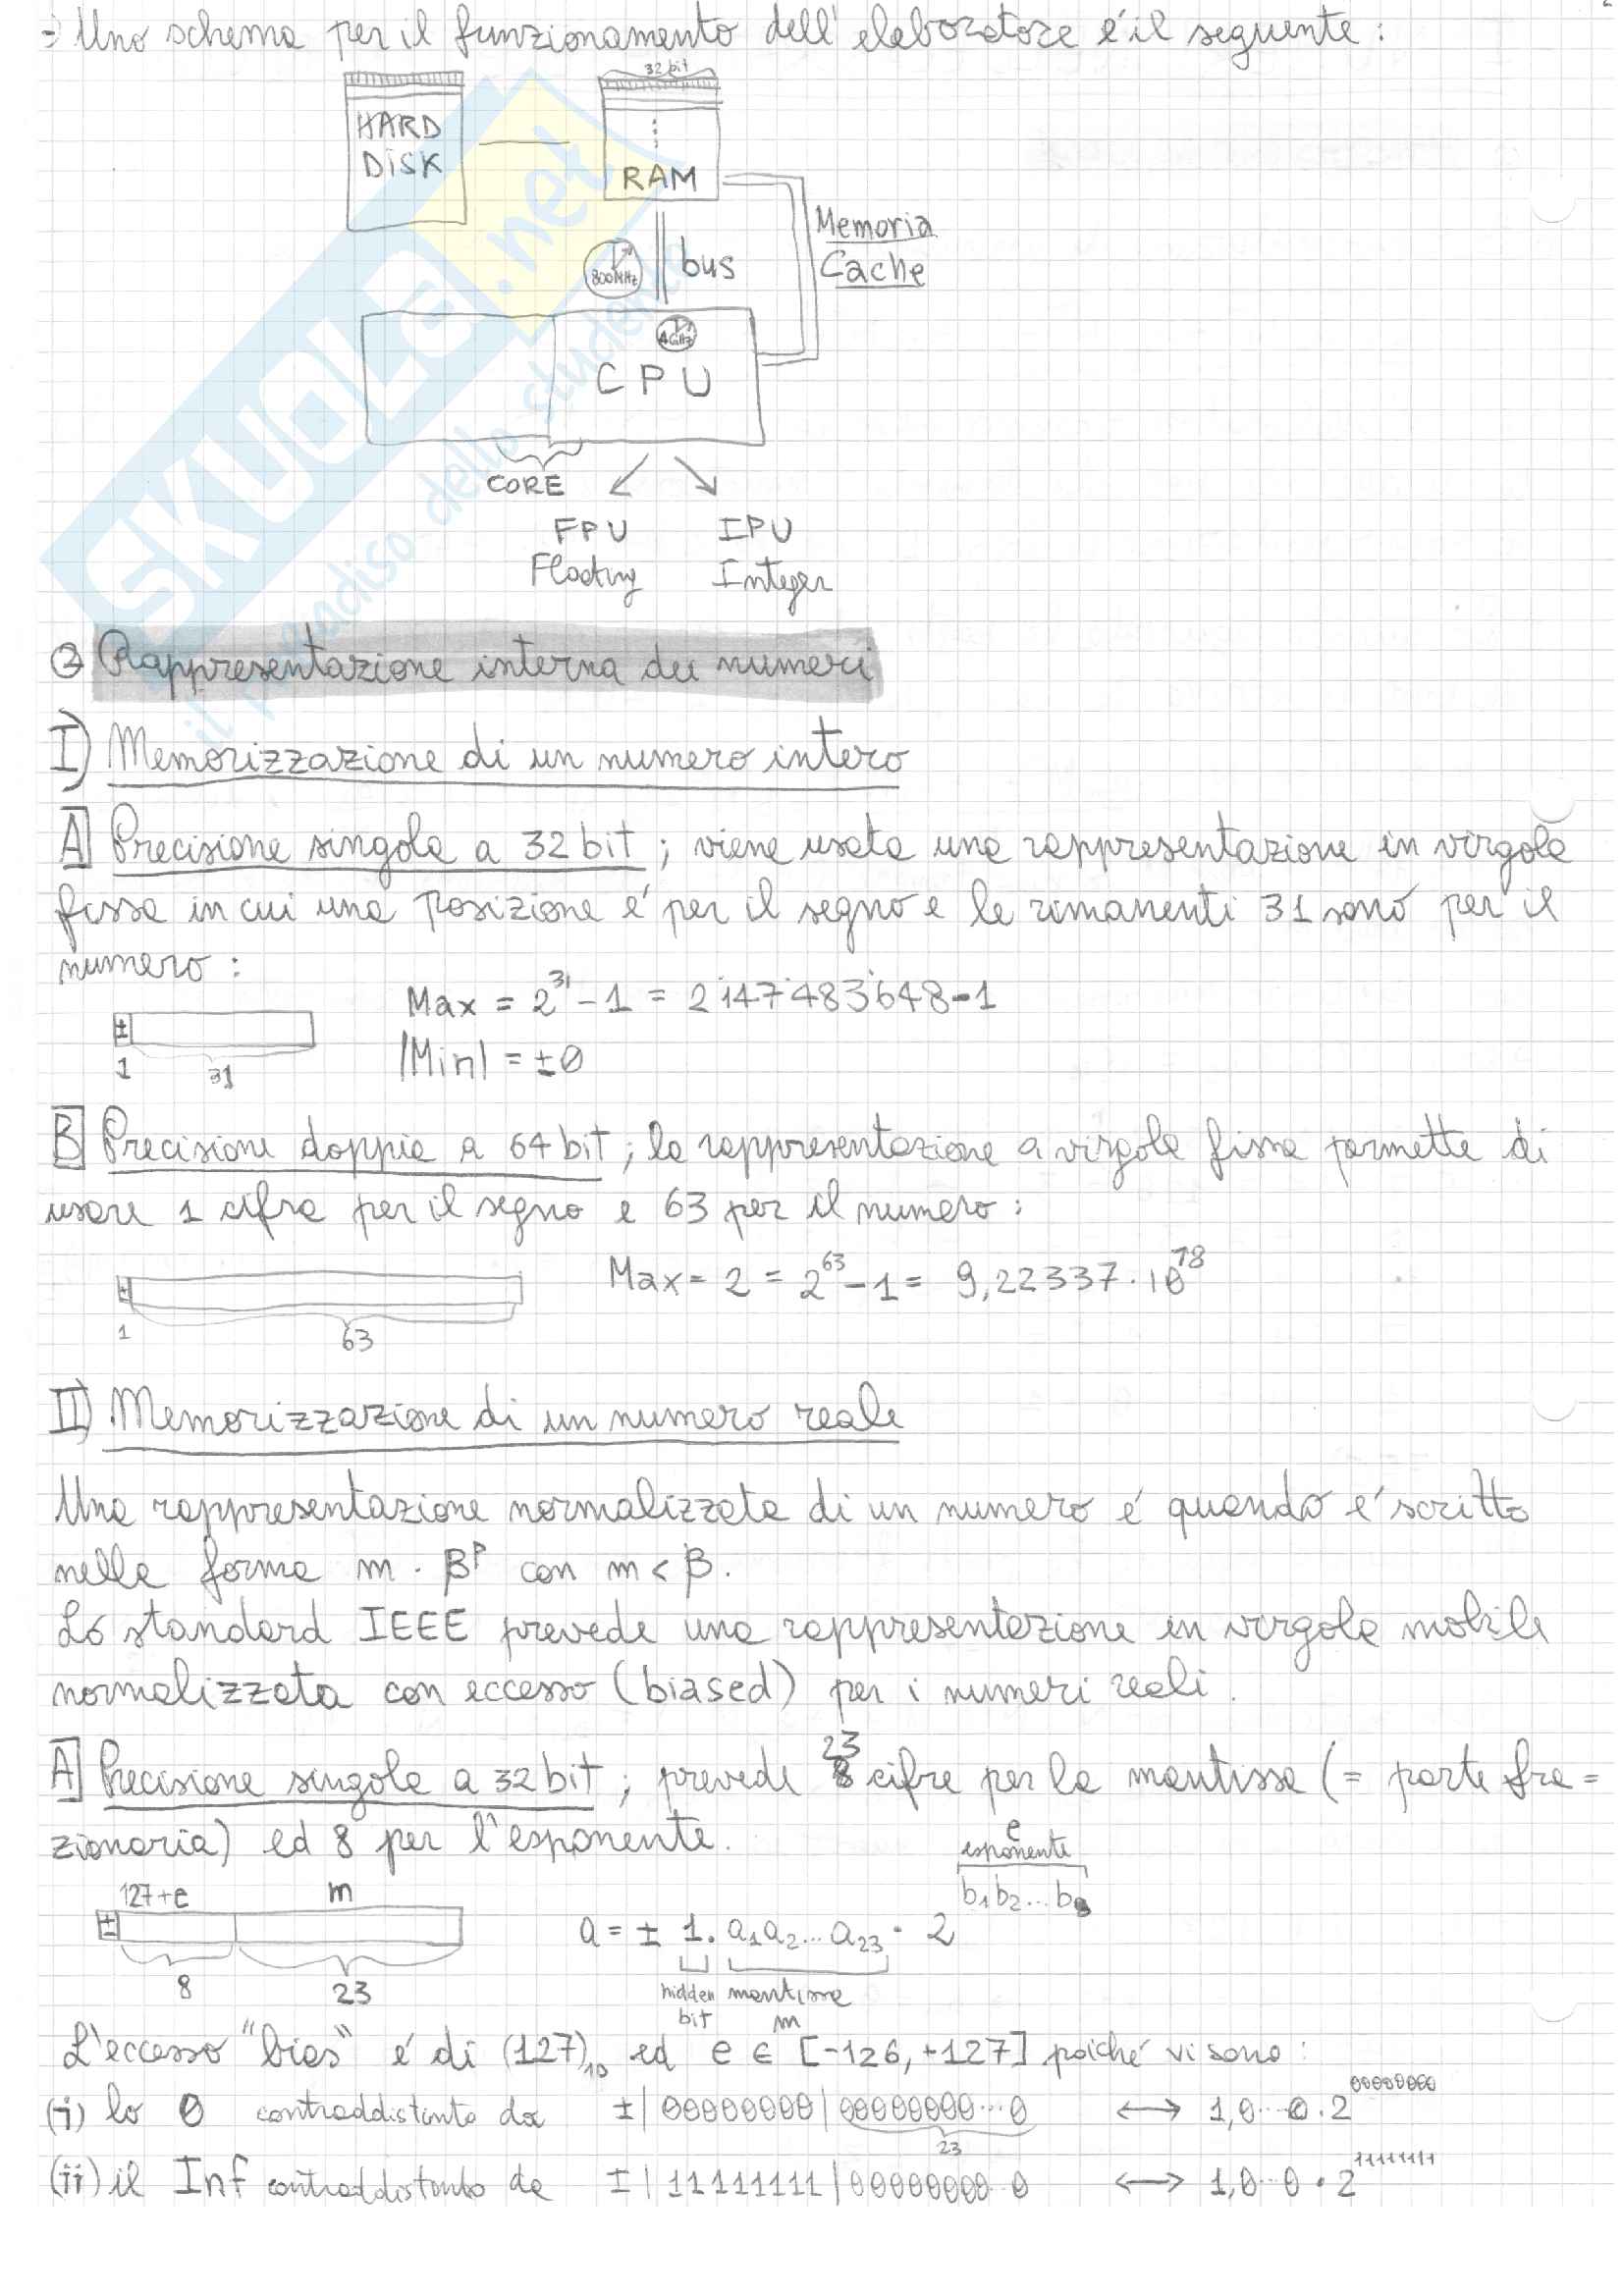 ⇒ Uno schema per il funzionamento dell'elaboratore é il seguente:
32 bit
HARD
DISK
⋮
RAM
Memoria
Cache
800MHz
bus
4GHz
CPU
CORE
FPU IPU
Floating Integer
SKUOLA.net
il paradiso dello studente
② Rappresentazione interna dei numeri
I) Memorizzazione di un numero intero
A] Precisione singola a 32 bit; viene usata una rappresentazione in virgola
fissa in cui una posizione é per il segno e le rimanenti 31 sono per il
numero:
± Max = 2^31 - 1 = 2'147'483'648-1
1 31 |Min| = ±0
B] Precisione doppia a 64 bit; la rappresentazione a virgola fissa permette di
usare 1 cifra per il segno e 63 per il numero:
± Max = 2 = 2^63 - 1 = 9,22337·10^18
1 63
II) Memorizzazione di un numero reale
Una rappresentazione normalizzata di un numero é quando é scritto
nella forma m · β^p con m < β.
Lo standard IEEE prevede una rappresentazione in virgola mobile
normalizzata con eccesso (biased) per i numeri reali.
A] Precisione singola a 32 bit; prevede 23 cifre per la mantissa (= parte fra=
zionaria) ed 8 per l'esponente.
e
esponente
127+e m b₁b₂...b₈
± a = ± 1. a₁a₂...a₂₃ · 2
8 23 hidden mantissa
bit m
L'eccesso "bias" é di (127)₁₀ ed e ∈ [-126, +127] poiché vi sono:
(i) lo 0 contraddistinto da ±|00000000|00000000...0 ⟷ 1,0...0·2^00000000
23
(ii) il Inf contraddistinto da ±|11111111|00000000...0 ⟷ 1,0...0·2^11111111